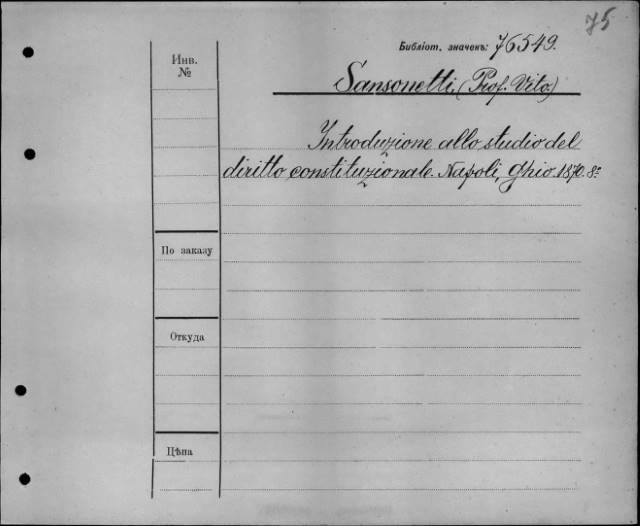 75
Библіот. значекъ: 76549.
Инв.
№
Sansonetti, (Prof. Vito)
Introduzione allo studio del
diritto constituzionale. Napoli, Ghio. 1870. 8°
По заказу
Откуда
Цѣна